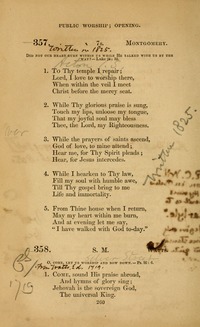 PUBLIC WORSHIP; OPENING.
357. 7s. MONTGOMERY.
Written in 1825.
DID NOT OUR HEART BURN WITHIN US WHILE HE TALKED WITH US BY THE
WAY?—Luke
1. To Thy temple I repair;
Lord, I love to worship there,
When within the veil I meet
Christ before the mercy seat.
2. While Thy glorious praise is sung,
Touch my lips, unloose my tongue,
That my joyful soul may bless
Thee, the Lord, my Righteousness.
3. While the prayers of saints ascend,
God of love, to mine attend;
Hear me, for Thy Spirit pleads;
Hear, for Jesus intercedes.
4. While I hearken to Thy law,
Fill my soul with humble awe,
Till Thy gospel bring to me
Life and immortality.
5. From Thine house when I return,
May my heart within me burn,
And at evening let me say,
"I have walked with God to-day."
Written 1825.
358. S. M.
O, COME, LET US WORSHIP AND BOW DOWN.—Ps.
1719
1. COME, sound His praise abroad,
And hymns of glory sing;
Jehovah is the sovereign God,
The universal King.